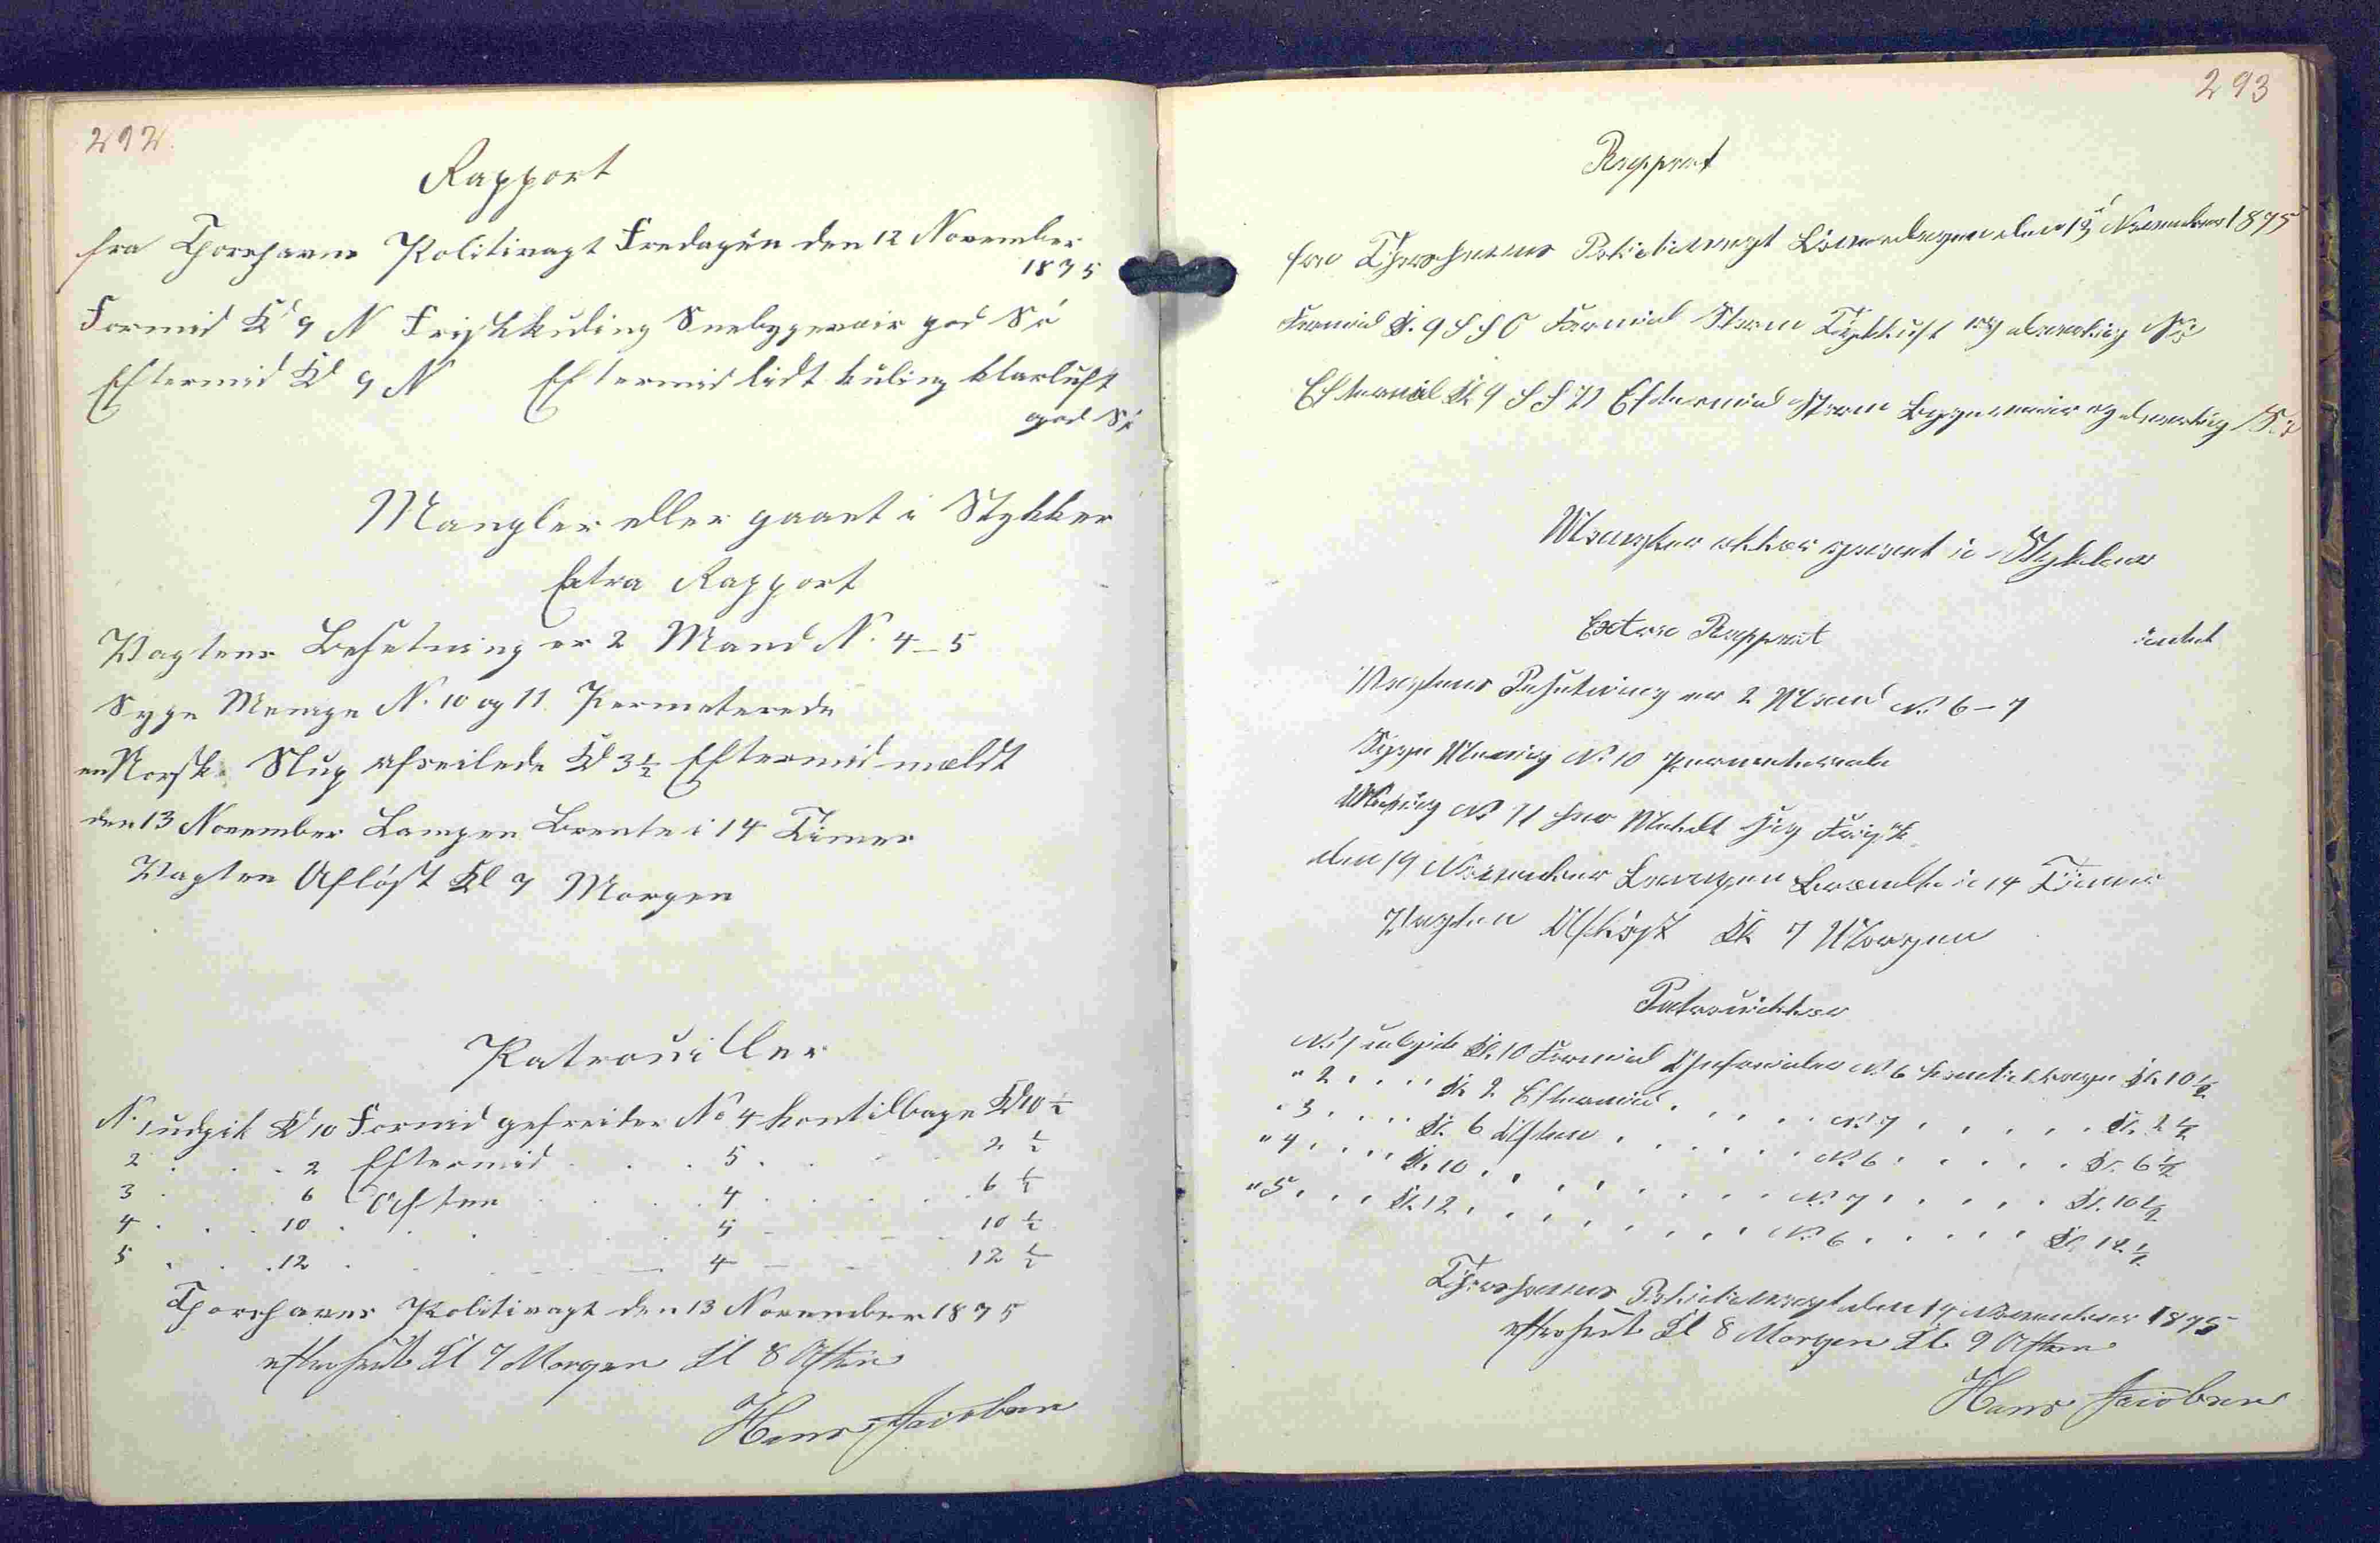 292.
Rapport
fra Thorshavns Politivagt Fredagen den 12 November
1875
Formid Kl 9 N Friskkuling Snebygeveir god Sö
Eftermid Kl 9 N Eftermid lidt kuling klarluft
god Sö
Mangler eller gaaet i Stykker
Extra Rapport
Vagtens Besetning er 2 Mand N. 4 - 5
Syge Menige N. 10 og 11 Permeterede
en Norsk Slup afseilede Kl 3 1/2 Eftermid meldt
den 13 November Lampen Brente i 14 Timer
Vagten Aflöst Kl 7 Morgen
Patrouiller
N. 1 udgik Kl 10 Formid gefreiter No 4 kom tilbage Kl 10 1/2
2 . . . 2 Eftermid . . . 5 . . . 2 1/2
3 . . . 6 Aften . . . 4 . . . 6 1/2
4 . . . 10 . . . 5 - - - 10 1/2
5 . . . 12 . . . 4 - - 12 1/2
Thorshavns Politivagt den 13 November 1875
efterseet Kl 7 Morgen Kl 8 Aften
Hans Jacobsen
293
Rapport
fra Thorshavns Politivagt Löverdagen den 13 November 1875
Formid Kl. 9 S S O Formid Storm Tykluft og urolig Sö
Eftermid Kl 9 S S V Eftermid Storm Bygeveir og urolig Sö
Mangler eller gaaet i Stykker
Extra Rapport intet
Vagtens Besetning er 2 Mand No 6 - 7
Syge Menig No 10 Permeterede
Menig No 11 har Meldt sig Frisk
den 14 November Lampen Brendte i 14 Timer
Vagten Aflöst Kl 7 Morgen
Patrouiller
No 1 udgik Kl. 10 Formid Gefreider No 6 kom tilbage Kl. 10 1/2
" 2 . . . Kl 2 Eftermid . . . No 7 . . . Kl. 2 1/2
" 3 . . . Kl. 6 Aften . . . No 6 . . . Kl. 6 1/2
" 4 . . . Kl. 10 . . . No 7 . . . Kl. 10 1/2
" 5 . . . Kl. 12 . . . No 6 . . . Kl. 12 1/2
Thorshavns Politivagt den 14 November 1875
efterseet Kl 8 Morgen Kl. 9 Aften
Hans Jacobsen